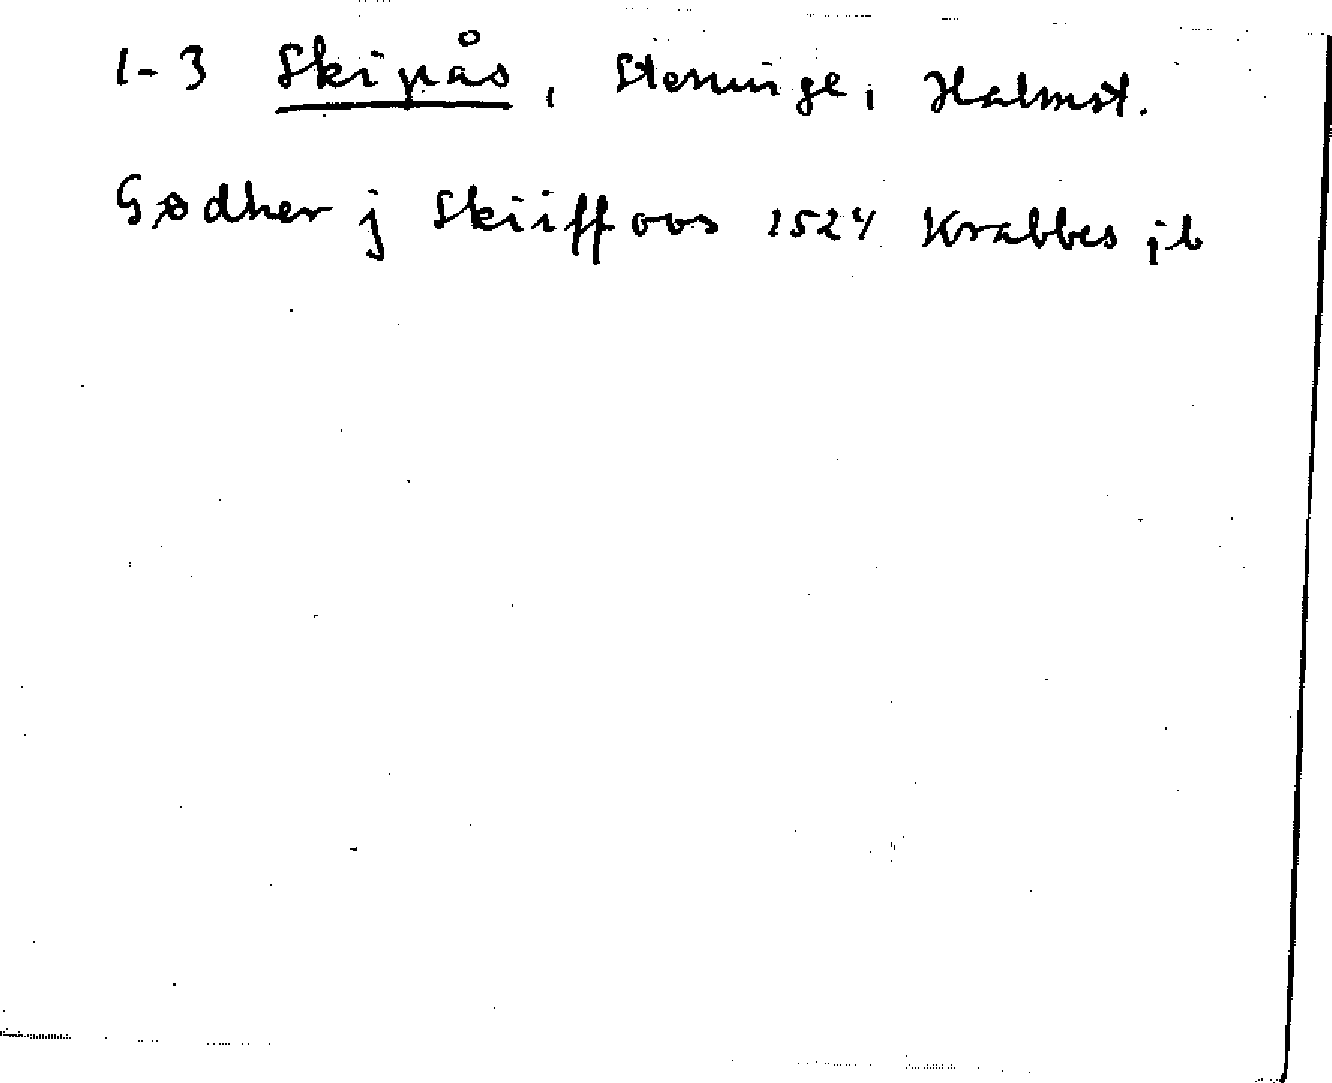 1-3 Skipås, Steninge, Halmst.
Gødher j Skiiffoos 1524 Krabbes jb